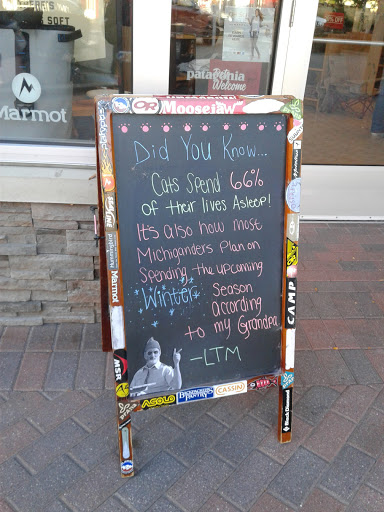 & SOFT
Marmot
patagonia
Welcome
OR Moosejaw
Did You Know...
Cats Spend 66%
of their lives Asleep!
It's also how most
Michiganders Plan on
Spending the upcoming
Winter Season
according
to my Grandpa
-LTM
patagonia
Marmot
MSR
CAMP
Black Diamond
ASOLO
CASSIN